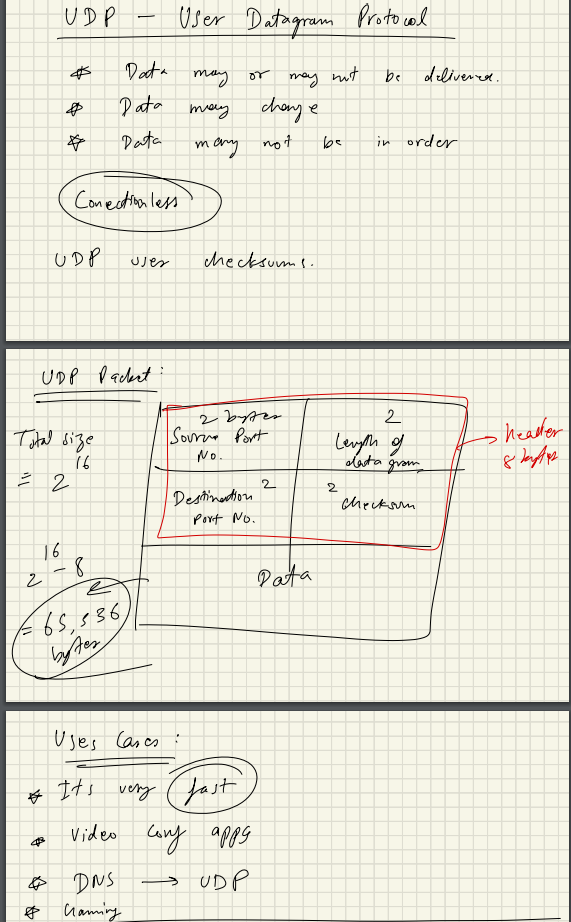 UDP - User Datagram Protocol
* Data may or may not be delivered.
* Data may change
* Data may not be in order
Conectionless
UDP uses checksums.
UDP Packet:
Total size
= 2^16
2^16 - 8
= 65,536
bytes
2 bytes
Source Port
No.
2
Length of
datagram
Destination 2
Port No.
2
checksum
header
8 bytes
Data
Uses Cases:
* Its very fast
* Video conf apps
* DNS → UDP
* Gaming